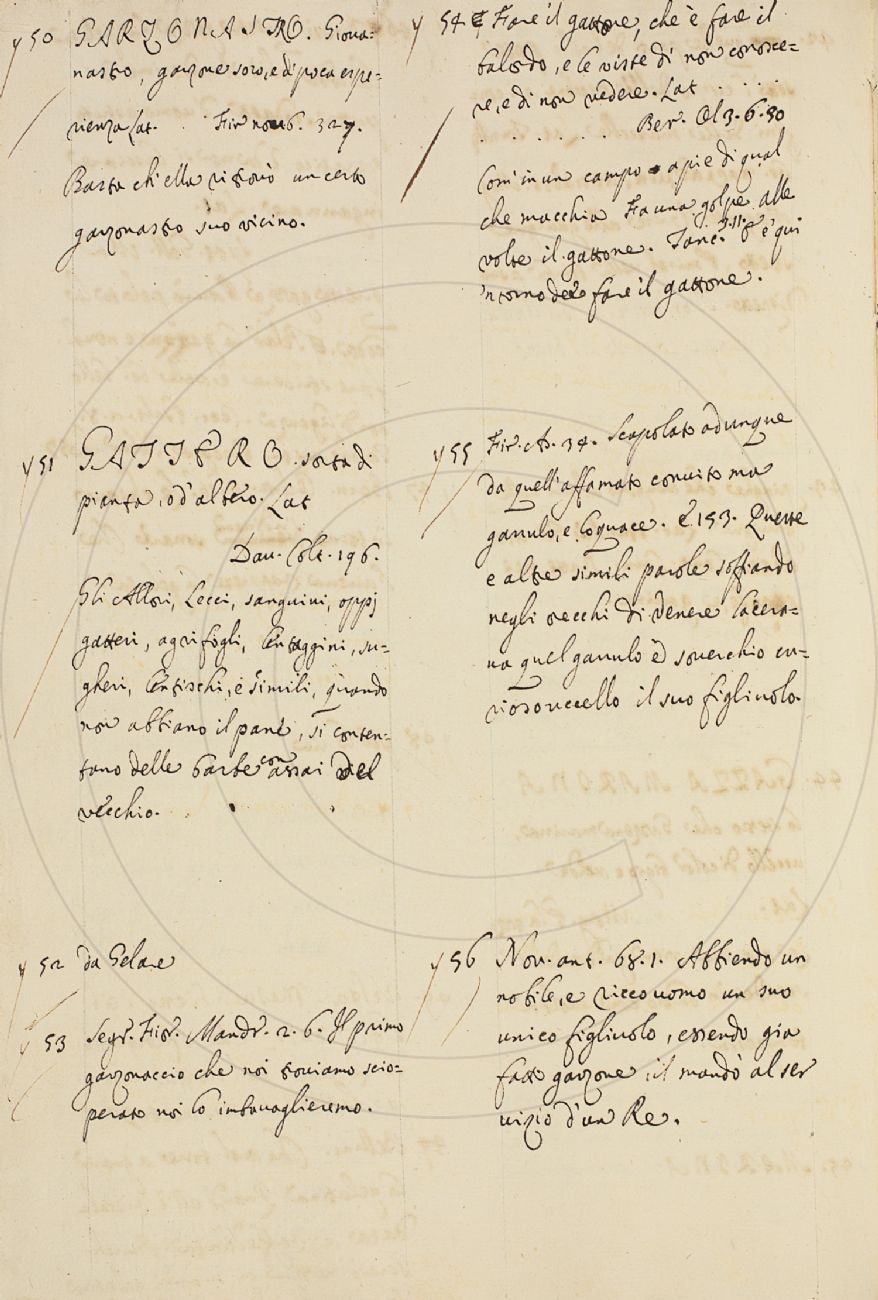 y 50 GARZONASTRO. Giova=
nastro, garzone soro, e di poca espe=
rienza Lat. . . Fir nov. 6. 327.
Basta ch'ella ri trovò un certo
garzonastro suo vicino.
y 51 GATTERO. sorta di
pianta, o d'albero. Lat
Dav. Colt. 196.
Gli Allori, Lecci, sanguini, oppj
gatteri, agrifogli, lentaggini, su=
gheri, lentischi, e simili, quando
non abbiano il pane, si conten=
tano delle barbe con assai del
vecchio.
y 52 da Gelare
y 53 Segr. Fior. Mandr. 2. 6. Il primo
garzonaccio che noi troviamo scio=
perato noi lo imbavaglieremo.
y 54 Fare il gattone, che è fare il
balordo, e le viste di non conosce=
re, e di non vedere. Lat . . . .
. . . . . . Ber. Ol 3. 6. 50
Com' in un campo a pie di qual
che macchia Fa una golpe alle
volte il gattone. Tanc. 3. 11. E è qui
'ntorno de fare il gattone.
y 55 Fir. As. 34. Scapolato adunque
da quell'affamato convito ma
garrulo, e loquace. E 153. Queste
e altre simili parole soffiando
negli orecchi di Venere lacera=
va quel garrulo ed soverchio cu=
rioso uccello il suo figliuolo.
y 56 Nov. ant. 68. 1. Abbiendo un
nobile, e ricco uomo un suo
unico figliuolo, essendo già
fatto garzone, il mandò al ser
vizio d'un Re.